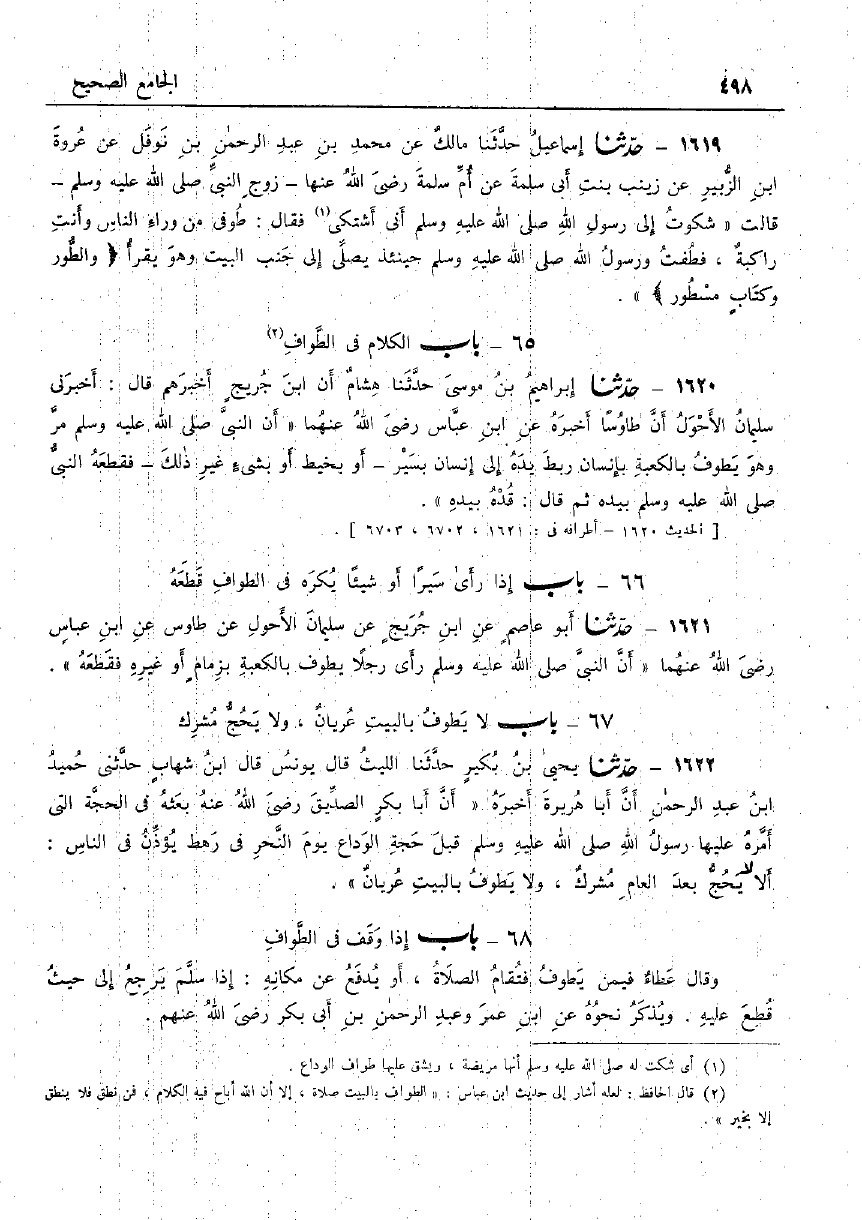 ٤٩٨ الجامع الصحيح
١٦١٩ – حدّثنا إسماعيلُ حدَّثَنا مالكٌ عن محمدِ بنِ عبدِ الرحمٰنِ بنِ نَوفَل عن عُروةَ
ابنِ الزُّبيرِ عن زينب بنتِ أبى سلمةَ عن أُمِّ سلمةَ رضىَ اللهُ عنها – زوجِ النبىِّ صلى الله عليه وسلم –
قالت « شكوتُ إلى رسولِ اللهِ صلى الله عليهِ وسلم أنى أشتكى(١) فقال : طُوفى من وراءِ الناسِ وأنتِ
راكبةٌ ، فطُفتُ ورسولُ الله صلى الله عليهِ وسلم حينئذ يصلِّى إلى جَنب البيت وهوَ يقرأُ ﴿ والطُّور
وكتَابٍ مسْطُور ﴾ » .
٦٥ – باب الكلام فى الطَّوافِ(٢)
١٦٢٠ – حدّثنا إبراهيمُ بنُ موسىَ حدَّثَنا هِشامٌ أن ابنَ جُريجٍ أخبرَهم قال : أخبرَنى
سليمانُ الأَحْوَلُ أنَّ طاوُسًا أخبرَهُ عنِ ابنِ عبَّاس رضىَ اللهُ عنهُما « أن النبىَّ صلى الله عليه وسلم مرَّ
وهوَ يَطوفُ بالكعبةِ بإنسان ربطَ يدَهُ إلى إنسان بسَيْر – أو بخيط أو بشىءٍ غيرِ ذٰلكَ – فقطعَهُ النبىُّ
صلى الله عليه وسلم بيده ثم قال : قُدْهُ بيدهِ » .
[ الحديث ١٦٢٠ – أطرافه فى : ١٦٢١ ، ٦٧٠٢ ، ٦٧٠٣ ] .
٦٦ – باب إذا رأىٰ سَيرًا أو شيئًا يُكرَه فى الطوافِ قَطَعَهُ
١٦٢١ – حدّثنا أبو عاصم عنِ ابنِ جُرَيجٍ عن سليمانَ الأَحولِ عن طاوس عنِ ابنِ عباسٍ
رضىَ اللهُ عنهُما « أنَّ النبىَّ صلى الله عليه وسلم رأى رجلًا يطوف بالكعبةِ بزِمامٍ أو غيرِهِ فقَطَعَهُ » .
٦٧ – باب لا يَطوفُ بالبيتِ عُريانٌ ، ولا يَحُجُّ مُشرِك
١٦٢٢ – حدّثنا يحيىٰ بنُ بُكيرٍ حدَّثَنا الليثُ قال يونسُ قال ابنُ شهابٍ حدَّثنى حُميدُ
ابنُ عبدِ الرحمٰنِ أنَّ أبا هُريرةَ أخبرَهُ « أنَّ أبا بكرٍ الصدِّيقَ رضىَ اللهُ عنهُ بعَثهُ فى الحجَّةِ التى
أمَّرهُ عليها رسولُ اللهِ صلى الله عليهِ وسلم قبلَ حَجةِ الوَداعِ يومَ النَّحرِ فى رَهطٍ يُؤذِّنُ فى الناسِ :
ألا لا يَحُجُّ بعدَ العامِ مُشركٌ ، ولا يَطوفُ بالبيتِ عُريانٌ » .
٦٨ – باب إذا وَقَف فى الطَّوافِ
وقال عَطاءٌ فيمن يَطوفُ فتُقامُ الصلَاةُ ، أو يُدفَعُ عن مكانِهِ : إذا سلَّمَ يَرجِعُ إلى حيثُ
قُطِعَ عليهِ . ويُذكَرُ نحوُهُ عن ابنِ عمرَ وعبدِ الرحمٰنِ بنِ أبى بكر رضىَ اللهُ عنهم .
(١) أى شكت له صلى الله عليه وسلم أنها مريضة ، ويشق عليها طواف الوداع .
(٢) قال الحافظ : لعله أشار إلى حديث ابن عباس : « الطواف بالبيت صلاة ، إلا أن الله أباح فيه الكلام ، فمن نطق فلا ينطق
إلا بخير » .